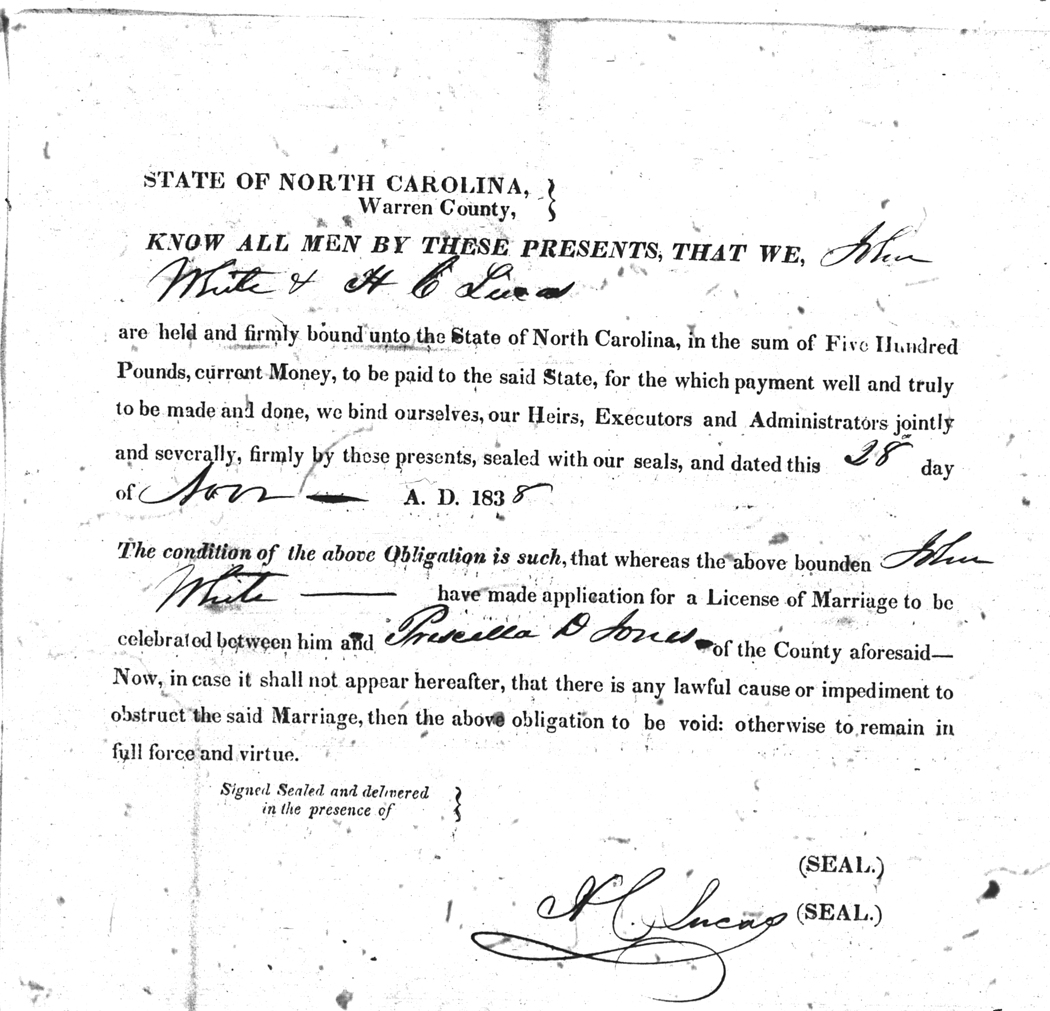 STATE OF NORTH CAROLINA,
Warren County,
KNOW ALL MEN BY THESE PRESENTS, THAT WE, John
White & H C Lucas
are held and firmly bound unto the State of North Carolina, in the sum of Five Hundred
Pounds, current Money, to be paid to the said State, for the which payment well and truly
to be made and done, we bind ourselves, our Heirs, Executors and Administrators jointly
and severally, firmly by these presents, sealed with our seals, and dated this 28 day
of Nov A. D. 1838
The condition of the above Obligation is such, that whereas the above bounden John
White have made application for a License of Marriage to be
celebrated between him and Priscilla D Jones of the County aforesaid—
Now, in case it shall not appear hereafter, that there is any lawful cause or impediment to
obstruct the said Marriage, then the above obligation to be void: otherwise to remain in
full force and virtue.
Signed Sealed and delivered
in the presence of
(SEAL.)
H C Lucas (SEAL.)